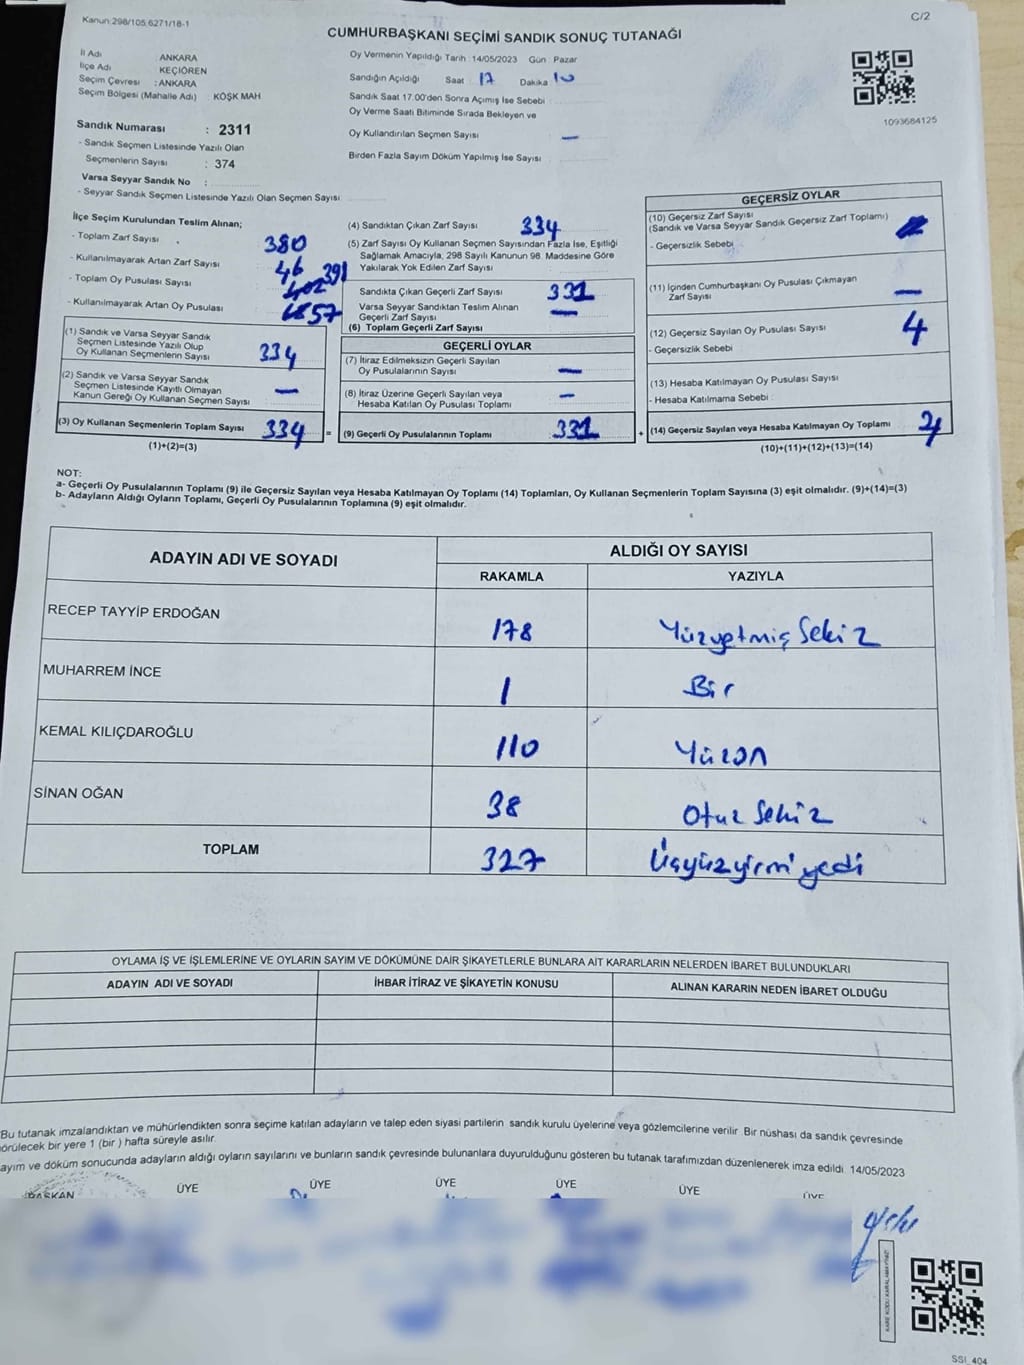 Kanun:298/105,6271/18-1
C/2
CUMHURBAŞKANI SEÇİMİ SANDIK SONUÇ TUTANAĞI
İl Adı : ANKARA
İlçe Adı : KEÇİÖREN
Seçim Çevresi : ANKARA
Seçim Bölgesi (Mahalle Adı) KÖŞK MAH
Sandık Numarası : 2311
- Sandık Seçmen Listesinde Yazılı Olan
Seçmenlerin Sayısı : 374
Varsa Seyyar Sandık No :
- Seyyar Sandık Seçmen Listesinde Yazılı Olan Seçmen Sayısı
Oy Vermenin Yapıldığı Tarih :14/05/2023 Gün : Pazar
Sandığın Açıldığı Saat : 17 Dakika : 10
Sandık Saat 17.00'den Sonra Açımış İse Sebebi
Oy Verme Saati Bitiminde Sırada Bekleyen ve
Oy Kullandırılan Seçmen Sayısı —
Birden Fazla Sayım Döküm Yapılmış İse Sayısı
1093684125
İlçe Seçim Kurulundan Teslim Alınan;
- Toplam Zarf Sayısı 380
- Kullanılmayarak Artan Zarf Sayısı 46
- Toplam Oy Pusulası Sayısı 391
- Kullanılmayarak Artan Oy Pusulası 57
(1) Sandık ve Varsa Seyyar Sandık
Seçmen Listesinde Yazılı Olup
Oy Kullanan Seçmenlerin Sayısı 334
(2) Sandık ve Varsa Seyyar Sandık
Seçmen Listesinde Kayıtlı Olmayan
Kanun Gereği Oy Kullanan Seçmen Sayısı —
(3) Oy Kullanan Seçmenlerin Toplam Sayısı 334 =
(1)+(2)=(3)
(4) Sandıktan Çıkan Zarf Sayısı 334
(5) Zarf Sayısı Oy Kullanan Seçmen Sayısından Fazla İse, Eşitliği
Sağlamak Amacıyla, 298 Sayılı Kanunun 98. Maddesine Göre
Yakılarak Yok Edilen Zarf Sayısı
Sandıkta Çıkan Geçerli Zarf Sayısı 331
Varsa Seyyar Sandıktan Teslim Alınan
Geçerli Zarf Sayısı —
(6) Toplam Geçerli Zarf Sayısı
GEÇERLİ OYLAR
(7) İtiraz Edilmeksizin Geçerli Sayılan
Oy Pusulalarının Sayısı —
(8) İtiraz Üzerine Geçerli Sayılan veya
Hesaba Katılan Oy Pusulası Toplamı —
(9) Geçerli Oy Pusulalarının Toplamı 331 +
GEÇERSİZ OYLAR
(10) Geçersiz Zarf Sayısı
(Sandık ve Varsa Seyyar Sandık Geçersiz Zarf Toplamı)
- Geçersizlik Sebebi
(11) İçinden Cumhurbaşkanı Oy Pusulası Çıkmayan
Zarf Sayısı —
(12) Geçersiz Sayılan Oy Pusulası Sayısı 4
- Geçersizlik Sebebi
(13) Hesaba Katılmayan Oy Pusulası Sayısı
- Hesaba Katılmama Sebebi :
(14) Geçersiz Sayılan veya Hesaba Katılmayan Oy Toplamı
(10)+(11)+(12)+(13)=(14)
NOT:
a- Geçerli Oy Pusulasının Toplamı (9) ile Geçersiz Sayılan veya Hesaba Katılmayan Oy Toplamı (14) Toplamları, Oy Kullanan Seçmenlerin Toplam Sayısına (3) eşit olmalıdır. (9)+(14)=(3)
b- Adayların Aldığı Oyların Toplamı, Geçerli Oy Pusulalarının Toplamına (9) eşit olmalıdır.
ADAYIN ADI VE SOYADI ALDIĞI OY SAYISI
RAKAMLA YAZIYLA
RECEP TAYYİP ERDOĞAN 178 Yüzyetmiş Sekiz
MUHARREM İNCE 1 Bir
KEMAL KILIÇDAROĞLU 110 Yüzon
SİNAN OĞAN 38 Otuz Sekiz
TOPLAM 327 Üçyüzyirmi yedi
OYLAMA İŞ VE İŞLEMLERİNE VE OYLARIN SAYIM VE DÖKÜMÜNE DAİR ŞİKAYETLERLE BUNLARA AİT KARARLARIN NELERDEN İBARET BULUNDUKLARI
ADAYIN ADI VE SOYADI İHBAR İTİRAZ VE ŞİKAYETİN KONUSU ALINAN KARARIN NEDEN İBARET OLDUĞU
Bu tutanak imzalandıktan ve mühürlendikten sonra seçime katılan adayların ve talep eden siyasi partilerin sandık kurulu üyelerine veya gözlemcilerine verilir. Bir nüshası da sandık çevresinde
örülecek bir yere 1 (bir ) hafta süreyle asılır.
ayım ve döküm sonucunda adayların aldığı oyların sayılarını ve bunların sandık çevresinde bulunanlara duyurulduğunu gösteren bu tutanak tarafımızdan düzenlenerek imza edildi. 14/05/2023
BAŞKAN ÜYE ÜYE ÜYE ÜYE ÜYE ÜYE
KARE KODU KARALAMAYINIZ!
SSI_404